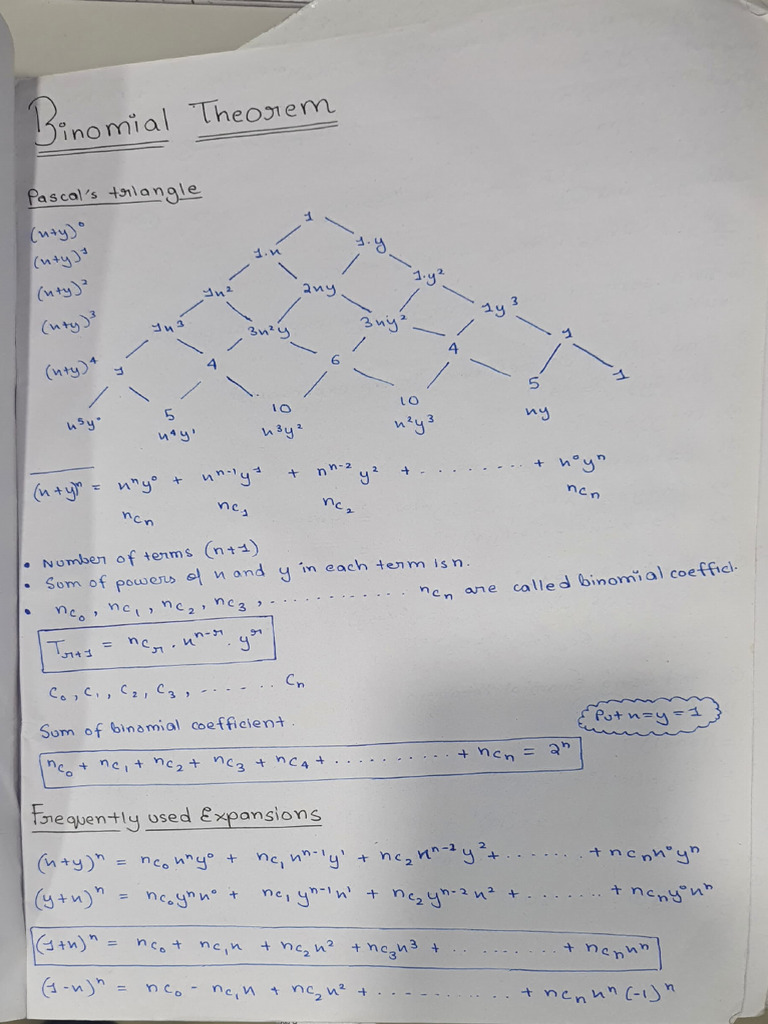 Binomial Theorem
Pascal's triangle
1
(x+y)⁰
(x+y)¹ 1·x 1·y
(x+y)² 1x² 2xy 1·y²
(x+y)³ 1x³ 3x²y 3xy² 1y³
(x+y)⁴ 1 4 6 4 1
x⁵y⁰ 5 10 10 5 1
x⁴y¹ x³y² x²y³ xy
(x+y)ⁿ = xⁿy⁰ + xⁿ⁻¹y¹ + xⁿ⁻² y² + ........ + x⁰yⁿ
nCn nC1 nC2 nCn
• Number of terms (n+1)
• Sum of powers of x and y in each term is n.
• nC0, nC1, nC2, nC3, ............ nCn are called binomial coeffici.
Tr+1 = nCr . xⁿ⁻ʳ . yʳ
C0, C1, C2, C3, ....... Cn
Sum of binomial coefficient.
Put x=y=1
nC0 + nC1 + nC2 + nC3 + nC4 + .......... + nCn = 2ⁿ
Frequently used Expansions
(x+y)ⁿ = nC0 xⁿy⁰ + nC1 xⁿ⁻¹y¹ + nC2 xⁿ⁻² y² + ....... + nCn x⁰yⁿ
(y+x)ⁿ = nC0 yⁿx⁰ + nC1 yⁿ⁻¹x¹ + nC2 yⁿ⁻² x² + ........ + nCn y⁰xⁿ
(1+x)ⁿ = nC0 + nC1x + nC2x² + nC3x³ + .......... + nCn xⁿ
(1-x)ⁿ = nC0 - nC1x + nC2x² + ........... + nCn xⁿ (-1)ⁿ